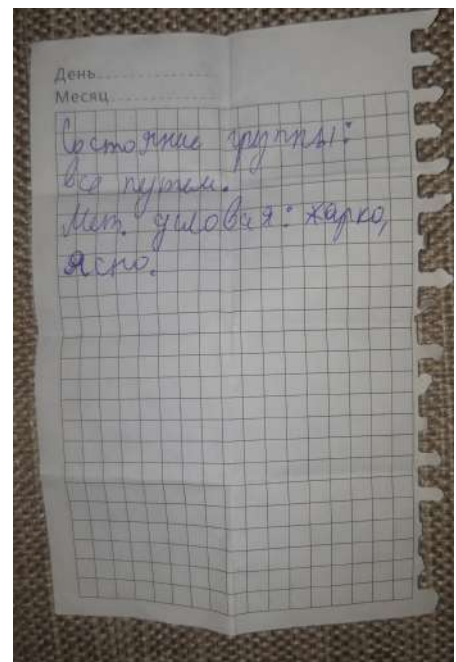 День
Месяц
Состояние группы:
все путем.
Мет. условия: жарко,
ясно.